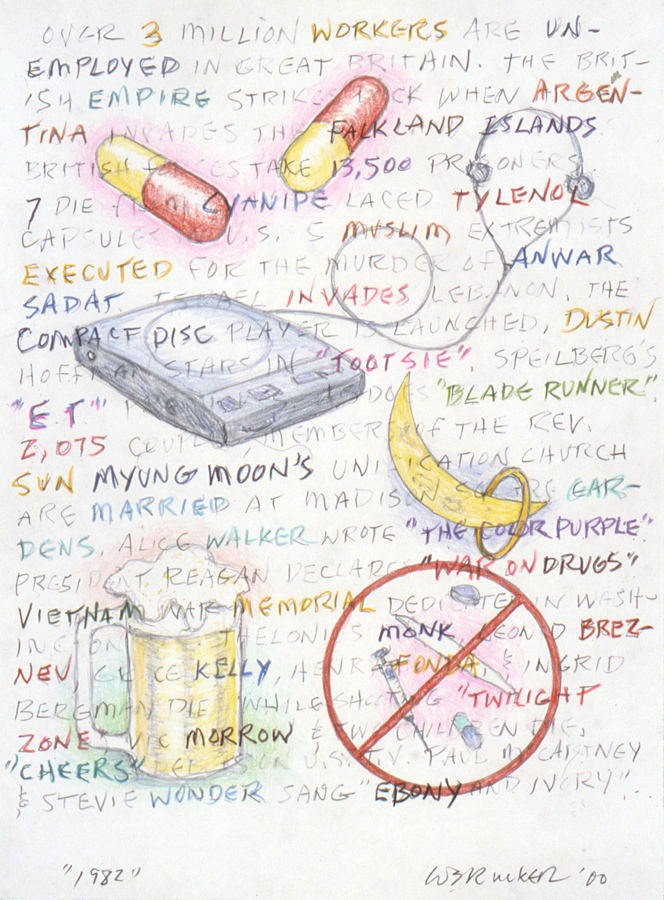 OVER 3 MILLION WORKERS ARE UN-
EMPLOYED IN GREAT BRITAIN. THE BRIT-
ISH EMPIRE STRIKES BACK WHEN ARGEN-
TINA INVADES THE FALKLAND ISLANDS
BRITISH FORCES TAKE 13,500 PRISONERS.
7 DIE FROM CYANIDE LACED TYLENOL
CAPSULES U.S. 5 MUSLIM EXTREMISTS
EXECUTED FOR THE MURDER OF ANWAR
SADAT. ISRAEL INVADES LEBANON, THE
COMPACT DISC PLAYER IS LAUNCHED, DUSTIN
HOFFMAN STARS IN "TOOTSIE", SPEILBERG'S
"E.T." "BLADE RUNNER".
2,075 COUPLES, MEMBERS OF THE REV.
SUN MYUNG MOON'S UNIFICATION CHURCH
ARE MARRIED AT MADISON SQUARE GAR-
DENS. ALICE WALKER WROTE "THE COLOR PURPLE"
PRESIDENT REAGAN DECLARES "WAR ON DRUGS"
VIETNAM WAR MEMORIAL DEDICATED IN WASH-
INGTON THELONIUS MONK, LEONID BREZ-
NEV, GRACE KELLY, HENRY FONDA, & INGRID
BERGMAN DIE. WHILE SHOOTING "TWILIGHT
ZONE" VIC MORROW & TWO CHILDREN DIE,
"CHEERS" ON U.S. T.V. PAUL McCARTNEY
& STEVIE WONDER SANG "EBONY AND IVORY"...
"1982"
WB Rucker '00